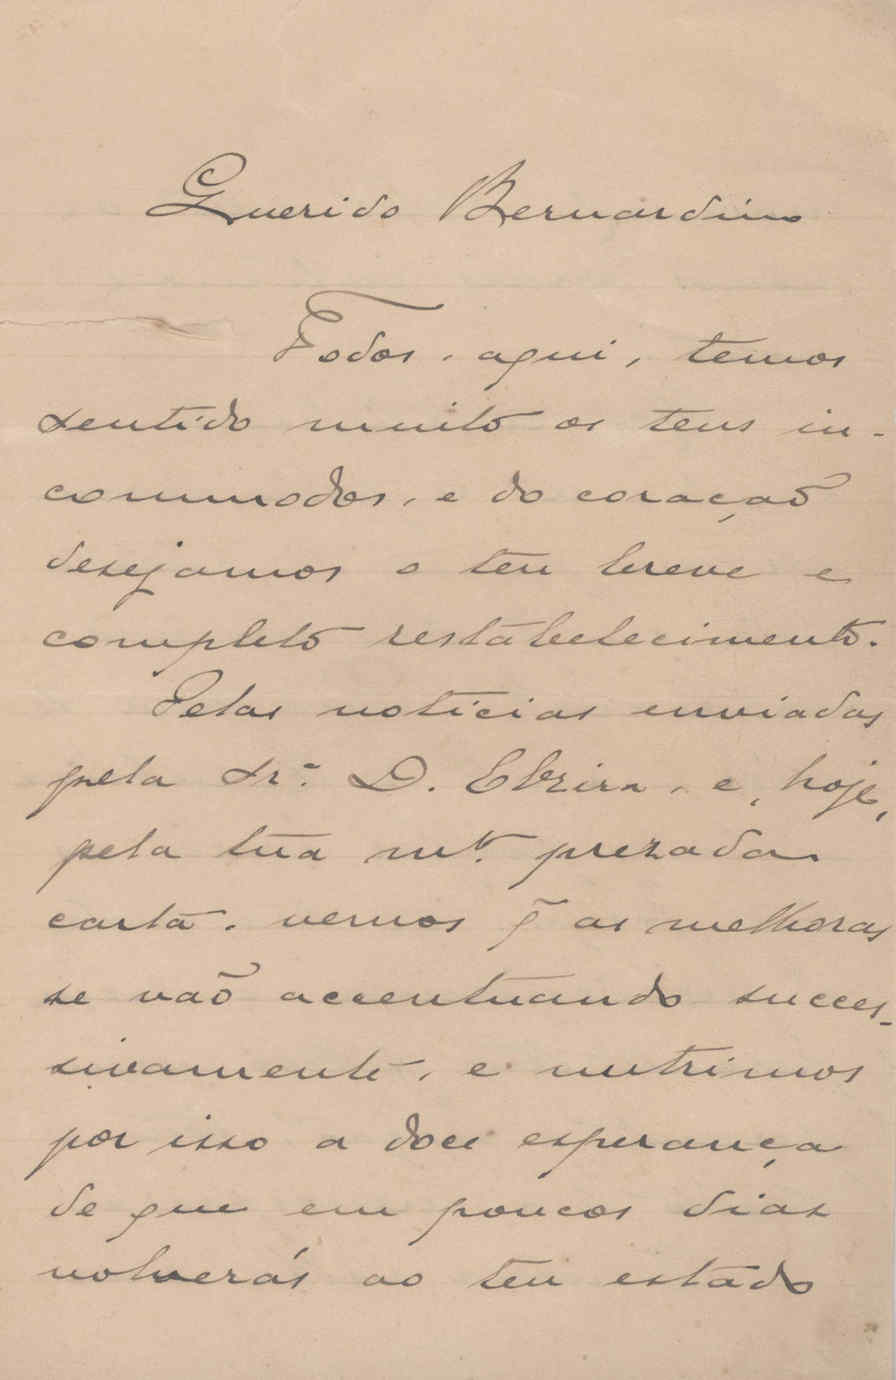 Querido Bernardino
Todos, aqui, temos
sentido muito os teus in-
commodos, e do coração
desejamos o teu breve e
completo restabelecimento.
Pelas noticias enviadas
pela Sr.ª D. Elzira, e, hoje,
pela tua mt.º prezada
carta, vemos q̃ as melhoras
se vaõ accentuando succes-
sivamente, e nutrimos
por isso a doce esperança
de que em poucos dias
volverás ao teu estado